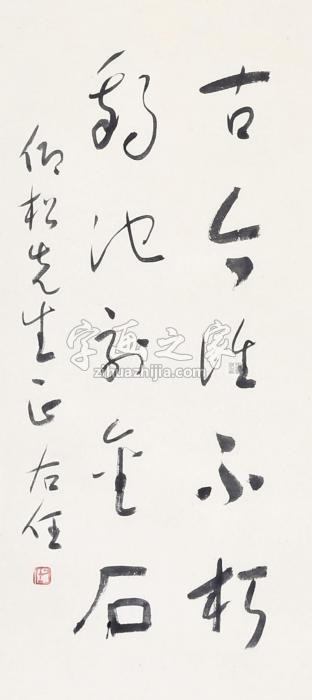 古今誰不朽
池金石
仰松先生正 右任
字画之家
www.zihuazhijia.com